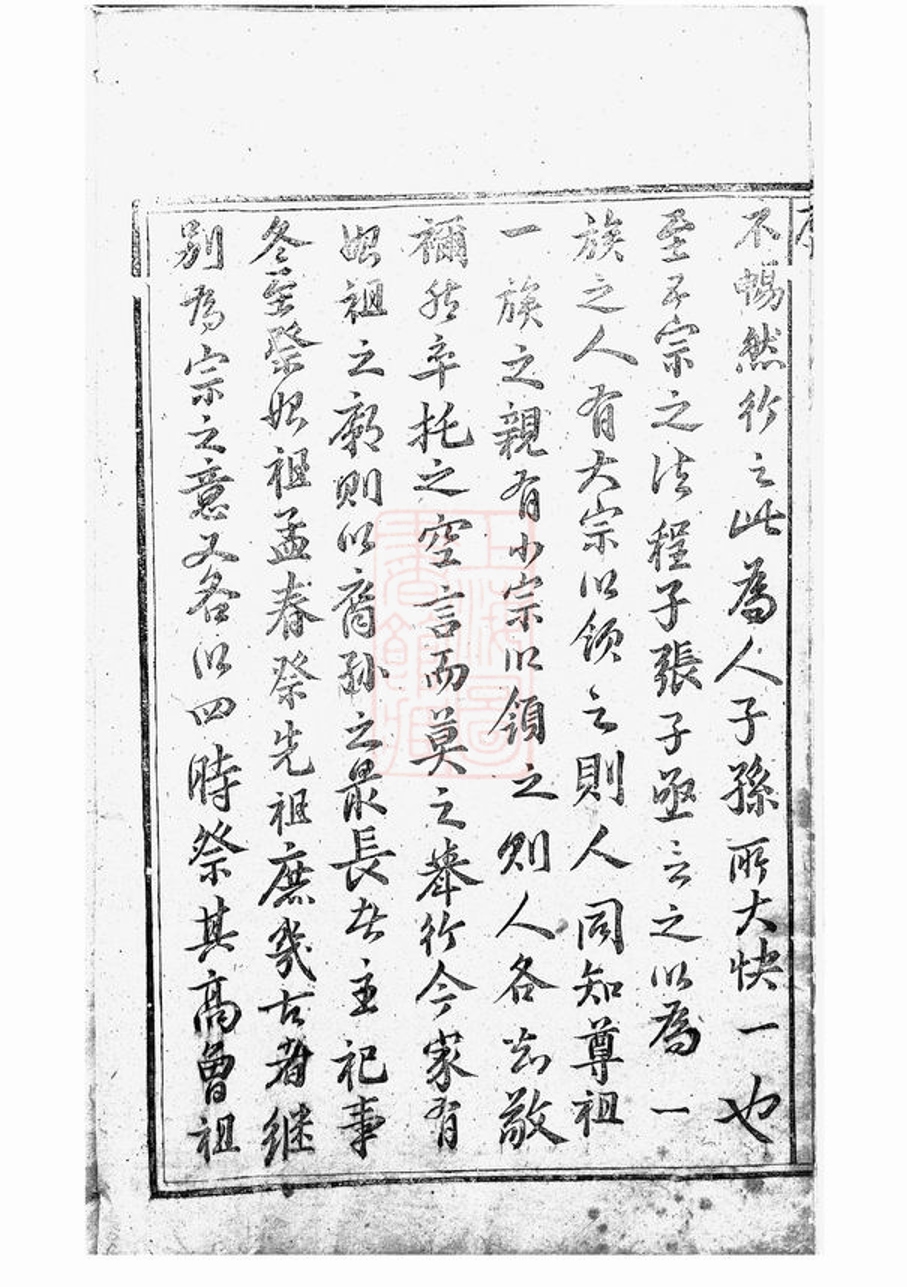 不暢然行之此為人子孫所大快一也
至于宗之法程子張子亟言之以為一
族之人有大宗以領之則人同知尊祖
一族之親有小宗以領之則人各知敬
禰然卒托之空言而莫之舉行今家有
始祖之廟則以裔孫之最長者主祀事
冬至祭始祖孟春祭先祖庶幾古者继
别為宗之意又各以四時祭其高曾祖
上海圖書館藏